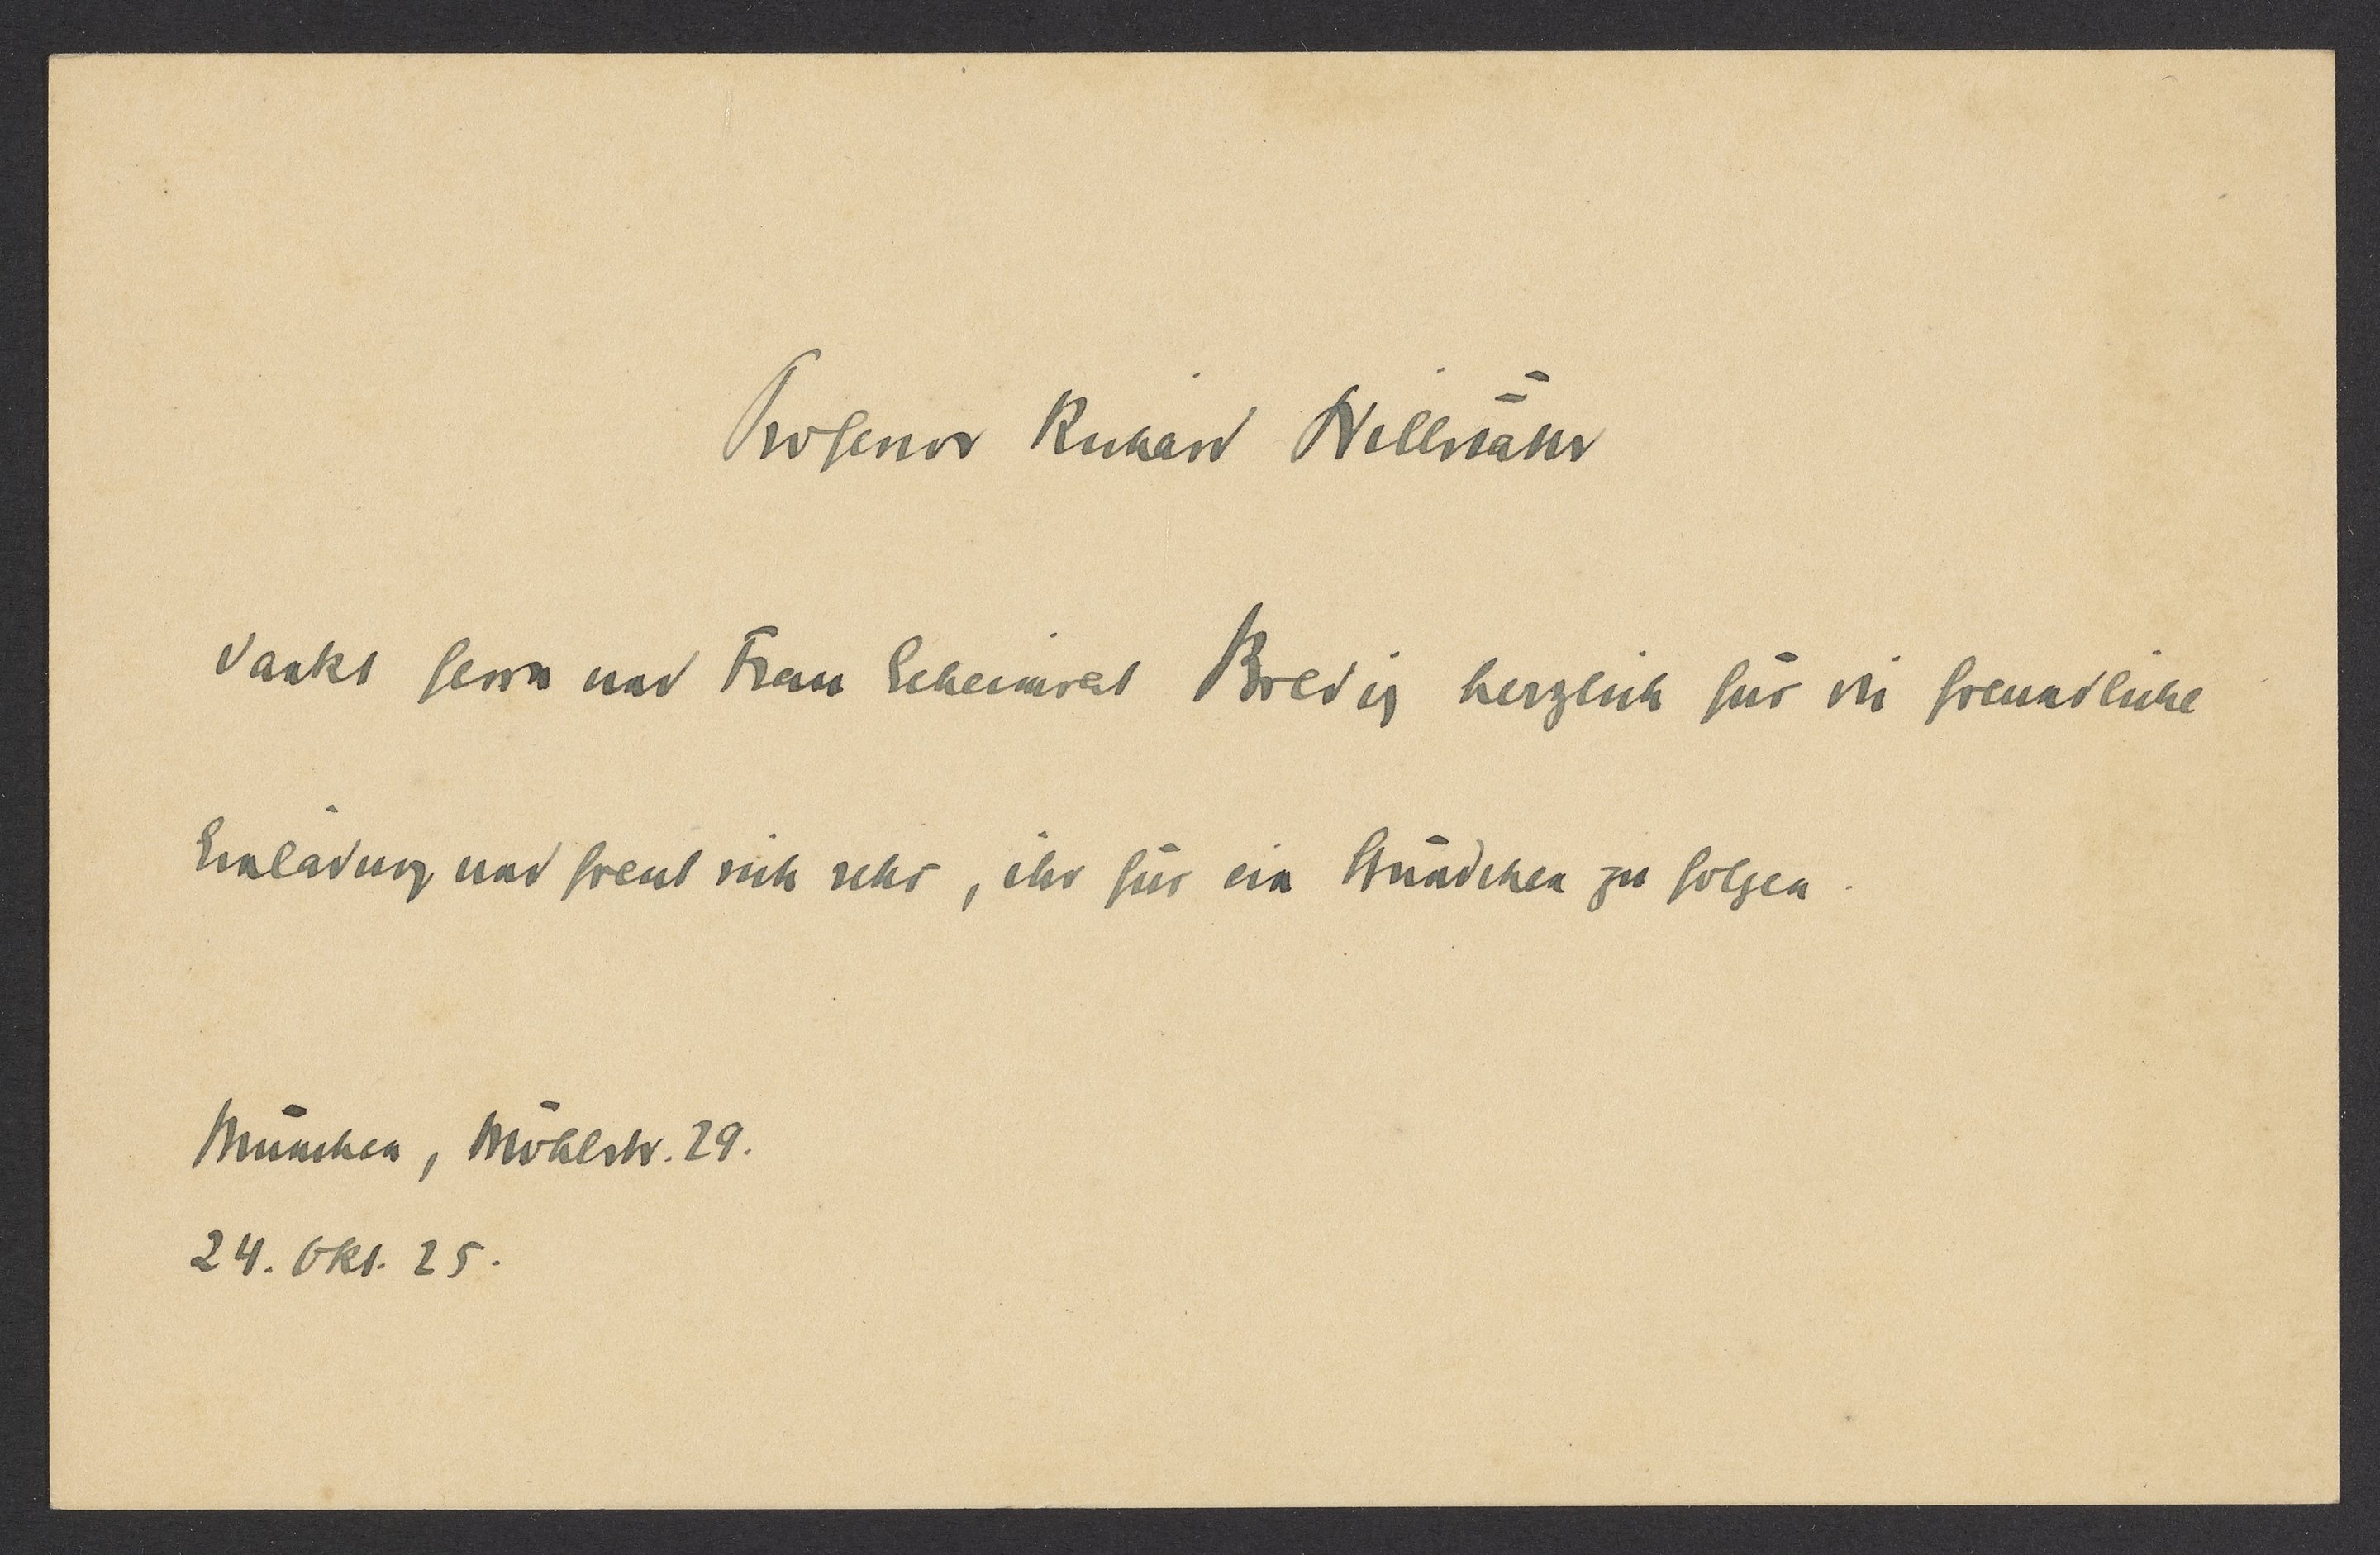 Professor Richard Willstätter
dankt Herrn und Frau Geheimrat Bredig herzlich für die freundliche
Einladung und freut sich sehr, ihr für ein Stündchen zu folgen.
München, Möhlstr. 29.
24. Okt. 25.